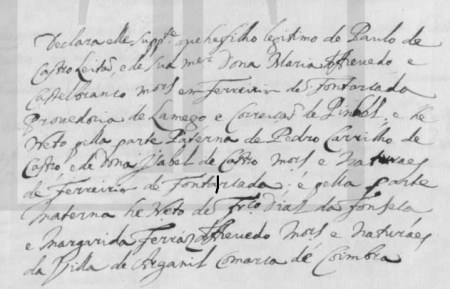 Declara elle Supp.te que he filho legitimo de Paulo de
Castro Leitão, e de sua m.er Dona Maria Azevedo e
Castelbranco mor.es em Ferreirin de Fontarcada
Provedoria de Lamego e Correição de Pinhel, e he
Neto pella parte Paterna de Pedro Carrilho de
Castro, e de Dona Izabel de Castro mor.es e Naturaes
de Ferreirin de Fontarcada; e pella parte
Materna he Neto de Dias da Fonseca
e Margarida Azevedo mor.es e naturaes
da Villa de Arganil Comarca de Coimbra